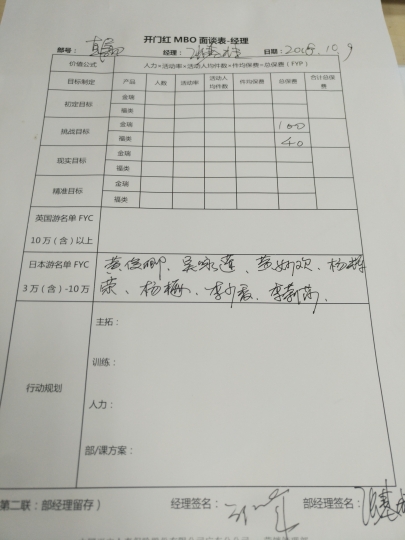 开门红 MBO 面谈表-经理
部号： 经理： 日期：2018.10.9
价值公式 人力×活动率×活动人均件数×件均保费=总保费（FYP）
目标制定 产品 人数 活动率 活动人均件数 件均保费 总保费 合计总保费
初定目标 金瑞
福类
挑战目标 金瑞 100
福类 40
现实目标 金瑞
福类
精准目标 金瑞
福类
英国游名单 FYC
10 万（含）以上
日本游名单 FYC 黄俊卿、吴咏莲、
3 万（含）-10 万 荣、杨梅、
行动规划
主拓：
训练：
人力：
部/课方案：
第二联：部经理留存） 经理签名： 部经理签名：